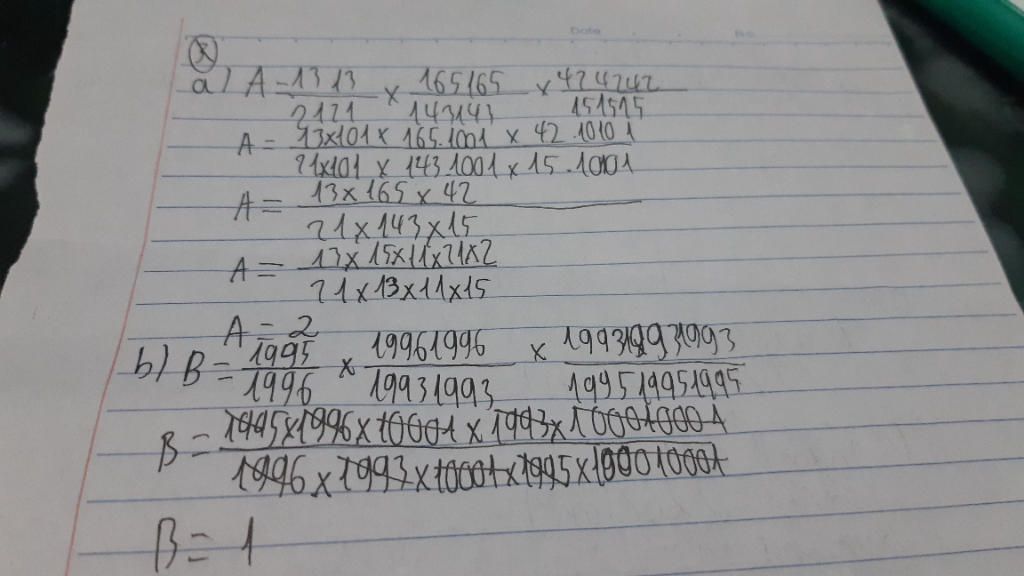 Date No
(x)
a) A = 1313/2121 × 165165/143143 × 424242/151515
A = 13×101 × 165.1001 × 42.10101 / 21×101 × 143.1001 × 15.10101
A = 13×165×42 / 21×143×15
A = 13×15×11×21×2 / 21×13×11×15
A = 2
b) B = 1995/1996 × 19961996/19931993 × 199319931993/199519951995
B = 1995×1996×10001×1993×100010001 / 1996×1993×10001×1995×100010001
B = 1